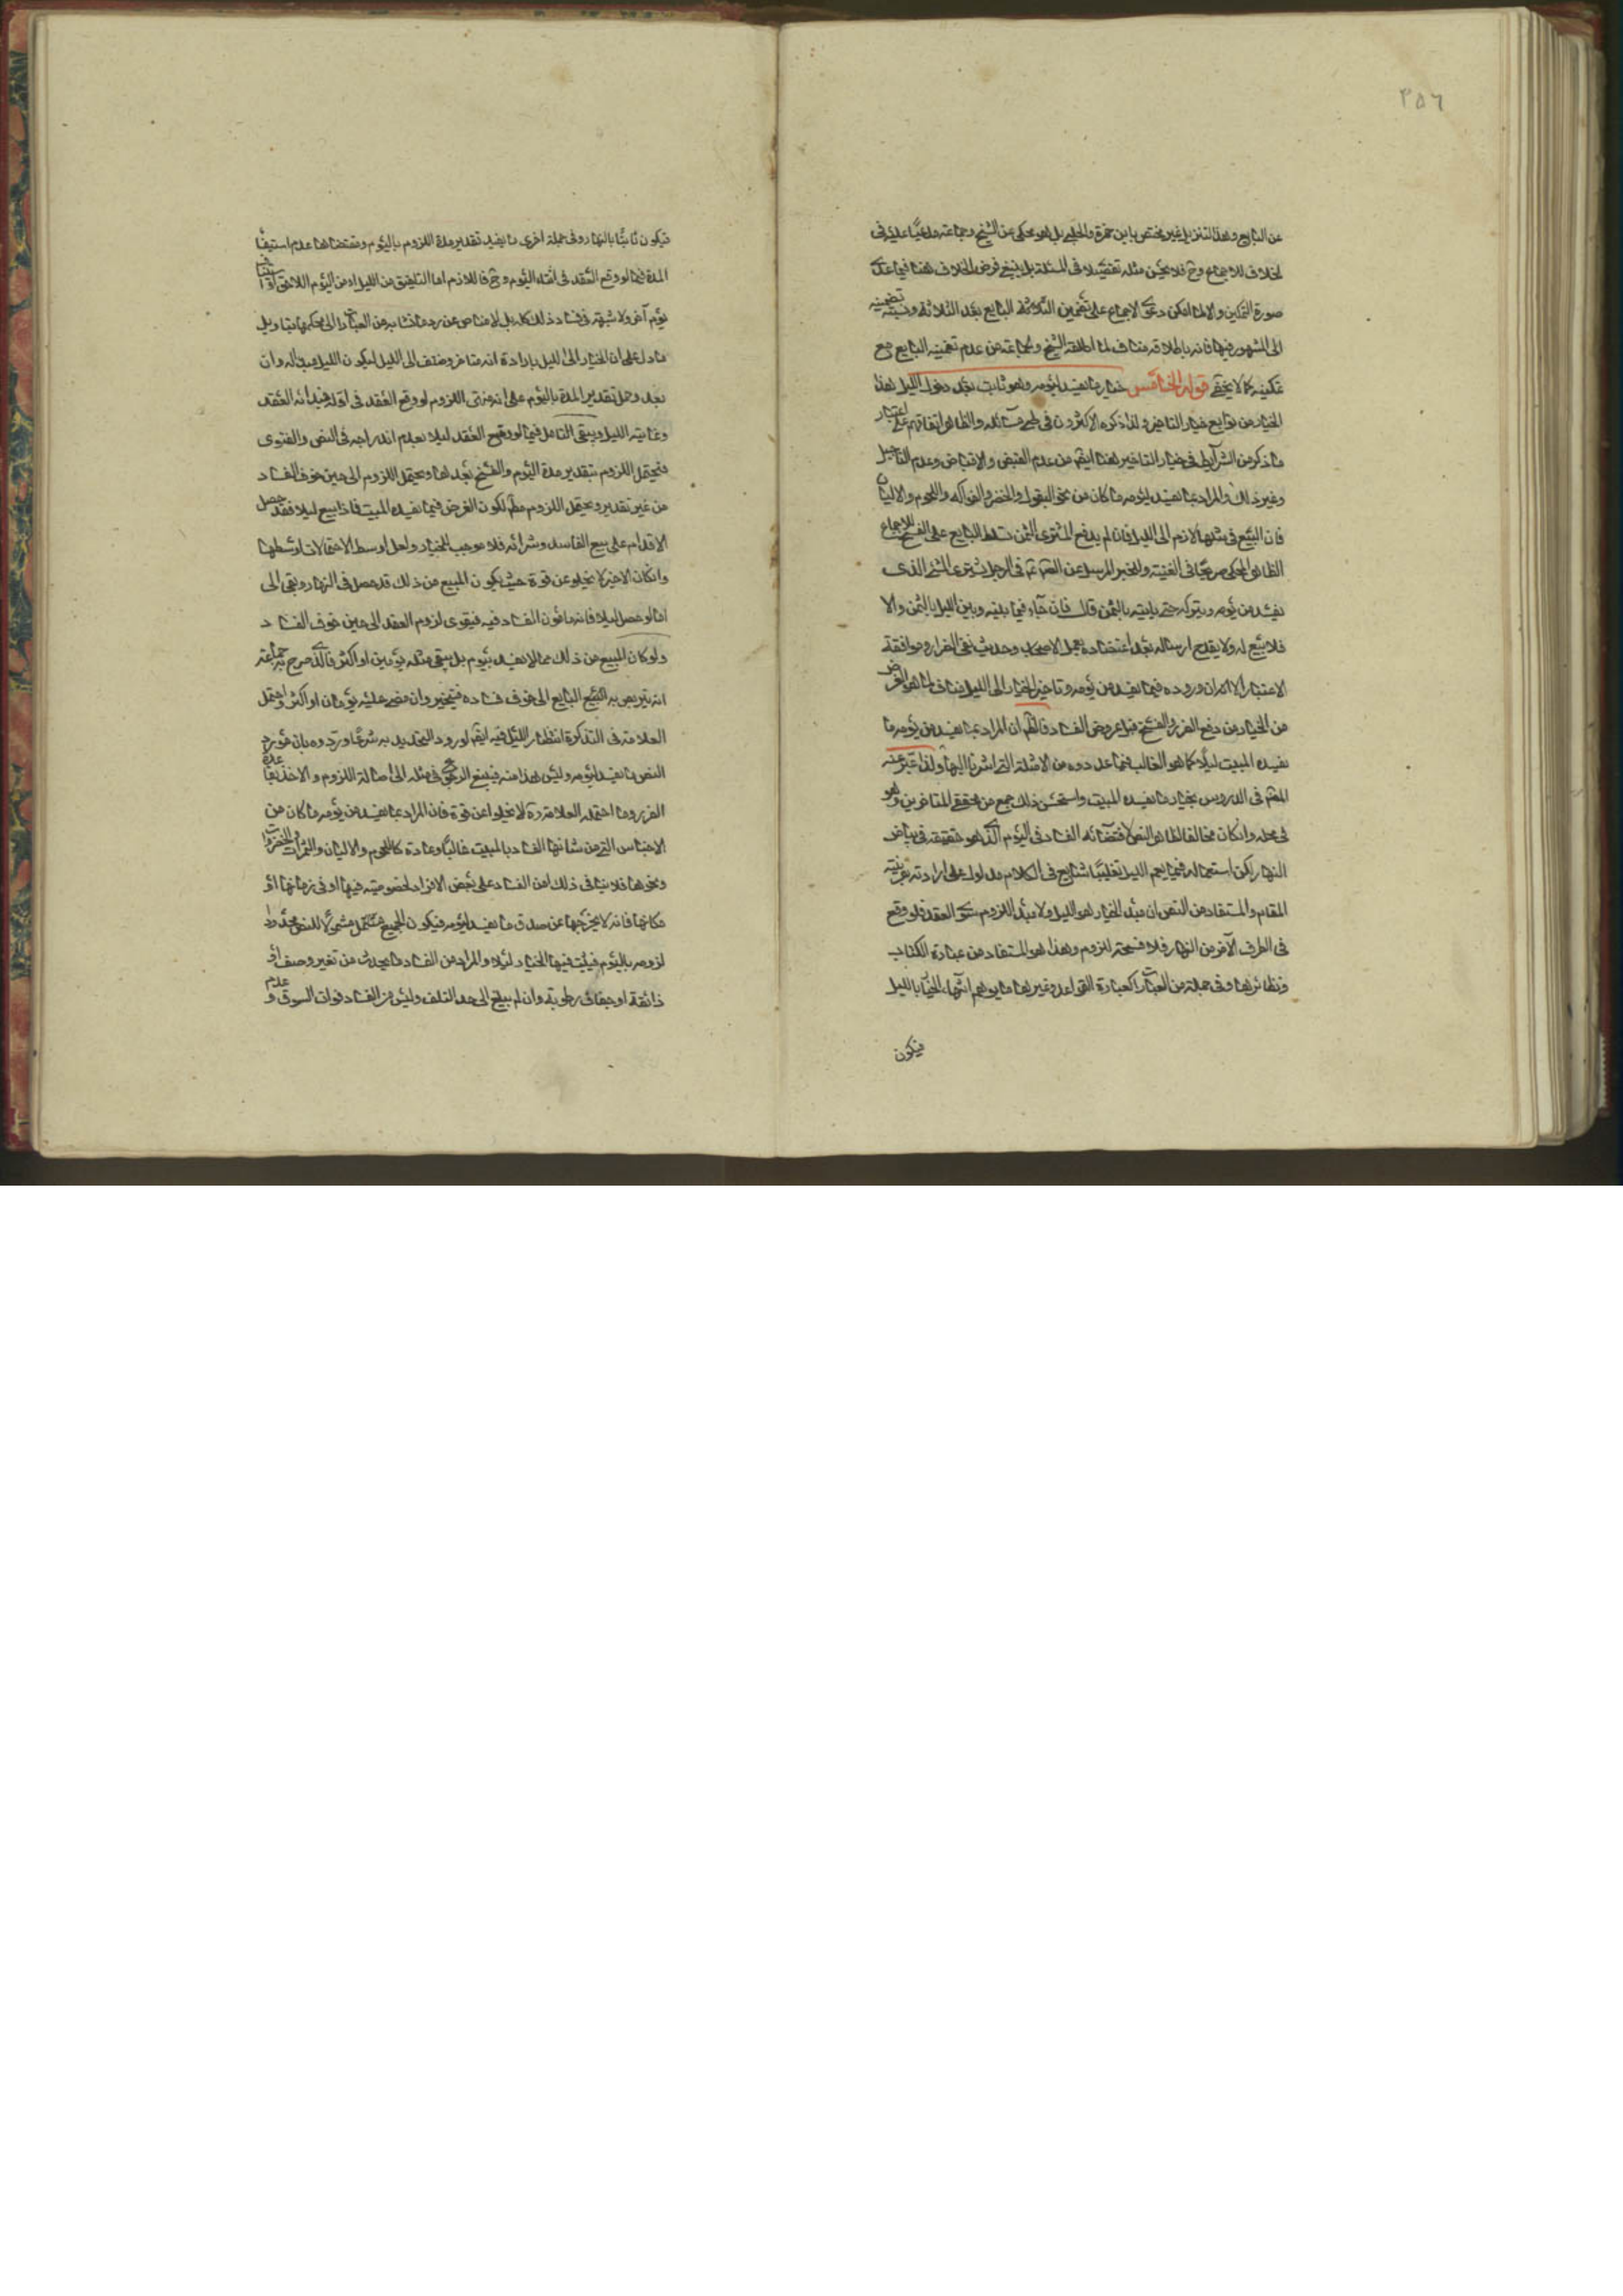 ٣٥٦
عن البايع وهذا التنزيل غير مختص بابن حمزة والحلبي بل هو محكى عن الشيخ وجماعة مدعيا عليه في
الخلاف للاجماع وح فلا يحسن مثله تفصيلا في المسئلة بل ينبغي فرض الخلاف هنا فيما عدى
صورة التمكين والا لما امكن دعوى الاجماع على تضمين الثلاثة البايع بعد الثلاثة ونسبة تضمينه
الى المشهور فيها فانه باطلاقه مناف لما اطلقه الشيخ وجماعة من عدم تضمينه البايع مع
تمكينه كما لا يخفى قوله الخامس خيار ما يفسد ليومه وهو ثابت بعد دخول الليل هذا
الخيار من توابع خيار التاخير ولذا ذكره الاكثرون في طي مسائله والظاهر اتفاقهم على اعتبار
ما ذكر من الشرايط في خيار التاخير هنا ايضا من عدم القبض والاقباض وعدم التاجيل
وغير ذلك والمراد بما يفسد ليومه ما كان من نحو البقول والخضر والفواكه واللحوم والالبان
فان البيع في مثلها لازم الى الليل فان لم يدفع المشترى الثمن تسلط البايع على الفسخ للاجماع
الظاهر المحكى صريحا في الغنية والخبر المرسل عن في الرجل يشترى الشئ الذى
يفسد من يومه ويتركه حتى ياتيه بالثمن قال فان جاء فيما بينه وبين الليل بالثمن والا
فلا بيع له ولا يقدح ارساله بعد اعتضاده بعمل الاصحاب وحديث نفى الضرار وموافقة
الاعتبار الا ان وروده فيما يفسد من يومه وتاخير الخيار الى الليل مناف لما هو الغرض
من الخيار من دفع الضرر والفسخ قبل عروض الفساد ان المراد بما يفسد من يومه ما
يفسده المبيت ليلا كما هو الغالب فيما عدوه من الامثلة التى اشرنا اليها ولذا عبر عنه
المصم في الدروس بخيار ما يفسده المبيت واستحسن ذلك جمع من محققى المتاخرين وهو
في محله وان كان مخالفا لظاهر النص لاقتضائه الفساد في اليوم الذى هو حقيقة في بياض
النهار لكن استعماله فيما يعم الليل تغليبا شايع في الكلام مدلول على ارادته بقرينة
المقام والمستفاد من النص ان مبدء الخيار هو الليل ولا مبدء للزوم سوى العقد فلو وقع
في الطرف الآخر من النهار فلا فسحة للزوم وهذا هو المستفاد من عبارة الكتاب
ونظائرها وفي جملة من العبارات كعبارة القواعد وغيرها ما يوهم انتهاء الخيار بالليل
فيكون
فيكون ثابتا بالنهار وفي جملة اخرى ما يفيد تقدير مدة اللزوم باليوم ومقتضاها عدم استيفاء
المدة فيما لو وقع العقد في اثناء اليوم وح فاللازم اما التلفيق من الليل او من اليوم اللاحق او
يوم آخر ولا شبهة في فساد ذلك كله بل لا مناص عن رد ما تشابه من العبارات الى محكمها بتاويل
ما دل على ان الخيار الى الليل بارادة انه متاخر الى الليل ليكون الليل مبدا له وان
بعد وحمل تقدير المدة باليوم على اللزوم لو وقع العقد في اوله فمبدائه العقد
وغايته الليل ويبقى التامل فيما لو وقع العقد ليلا بعدم اندراجه في النص والفتوى
فيحتمل اللزوم بتقدير مدة اليوم والفسخ بعدها ويحتمل اللزوم الى حين خوف الفساد
من غير تقدير ويحتمل اللزوم مطلقا لكون الغرض فيما يفسده المبيت فاذا بيع ليلا فقد حصل
الاقدام على بيع الفاسد وشرائه فلا موجب للخيار ولعل اوسط الاحتمالات اوسطها
وان كان الاخير لا يخلو عن قوة حيث يكون المبيع من ذلك قد حصل في النهار وبقى الى
اما لو حصل ليلا فانه مامون الفساد فيه فيقوى لزوم العقد الى حين خوف الفساد
ولو كان المبيع من ذلك مما لا يفسد بيوم بل يبقى مثله يومين او اكثر فالذى صرح به جماعة
انه يتربص به البايع الى خوف فساده فيتخير وان مضى عليه يومان او اكثر واحتمل
العلامة في التذكرة انتظار الليل فيه ايضا لورود التحديد به شرعا وردوه بان مورد
النص ما يفسد ليومه وليس هذا منه فينبغي الرجوع في مثله الى اصالة اللزوم والاخذ بقاعدة
الضرر وما احتمله العلامة ره لا يخلوا عن قوة فان المراد بما يفسد من يومه ما كان من
الاجناس التى من شانها الفساد بالمبيت غالبا وعادة كاللحوم والالبان والثمرات والخضروات
ونحوها فلا ينافى ذلك امن الفساد على بعض الافراد لخصوصية فيها او في زمانها او
مكانها فانه لا يخرجها عن صدق ما يفسد ليومه فيكون الجميع مشمولا للنص محدودا
لزومه باليوم فيثبت فيها الخيار ليلا والمراد من الفساد ما يحدث من تغير وصف او
ذائقة او جفاف رطوبة وان لم يبلغ الى حد التلف وليس من الفساد فوات السوق وعدم